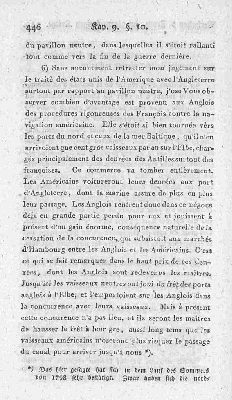 446 Kap. 9. §. 10.
du pavillon neutre, dans lesquelles il s'étoit rallanti
tout comme vers la fin de la guerre dernière.
6) Sans aucunement retracter mon jugement sur
le traité des états unis de l'Amérique avec l'Angleterre
surtout par rapport au pavillon neutre, j'ose Vous
observer combien d'avantage est provenu aux Anglois
des procédures rigoureuses des François contre la na-
vigation américaine. Elle s'étoit si bien tournée vers
les ports du nord et ceux de la mer Baltique, qu'il en
arrivoit que cent gros vaisseaux par an sur l'Elbe, char-
gés principalement des denrées des Antilles surtout des
françoises. Ce commerce va tomber entièrement.
Les Américains voitureront leurs denrées aux port
d'Angleterre, dont la marine assure de plus en plus
leur passage. Les Anglois rentrent donc dans ce négoce
déjà en grande partie perdu pour eux et jouissent à
présent d'un gain énorme, conséquence naturelle de la
cessation de la concurrence, qui subsistoit aux marchés
d'Hambourg entre les Anglois et les Américains. C'est
ce qui se fait remarquer dans le haut prix de ces
denrées, dont les Anglois sont redevenus les maîtres.
Jusqu'ici les vaisseaux neutres ont joui du frêt des ports
anglois à l'Elbe, et l'emportoient sur les Anglois dans
la concurrence avec leurs vaisseaux. Mais à présent
cette concurrence n'a pas lieu, et ils seront les maîtres
de hausser le frêt à leur gré, aussi long tems que les
vaisseaux américains n'oseront plus risquer le passage
du canal pour arriver jusqu'à nous *).
*) Das hier gesagte hat sich in dem Lauf des Sommers
von 1798 sehr bestätigt. Zwar haben sich die nord-